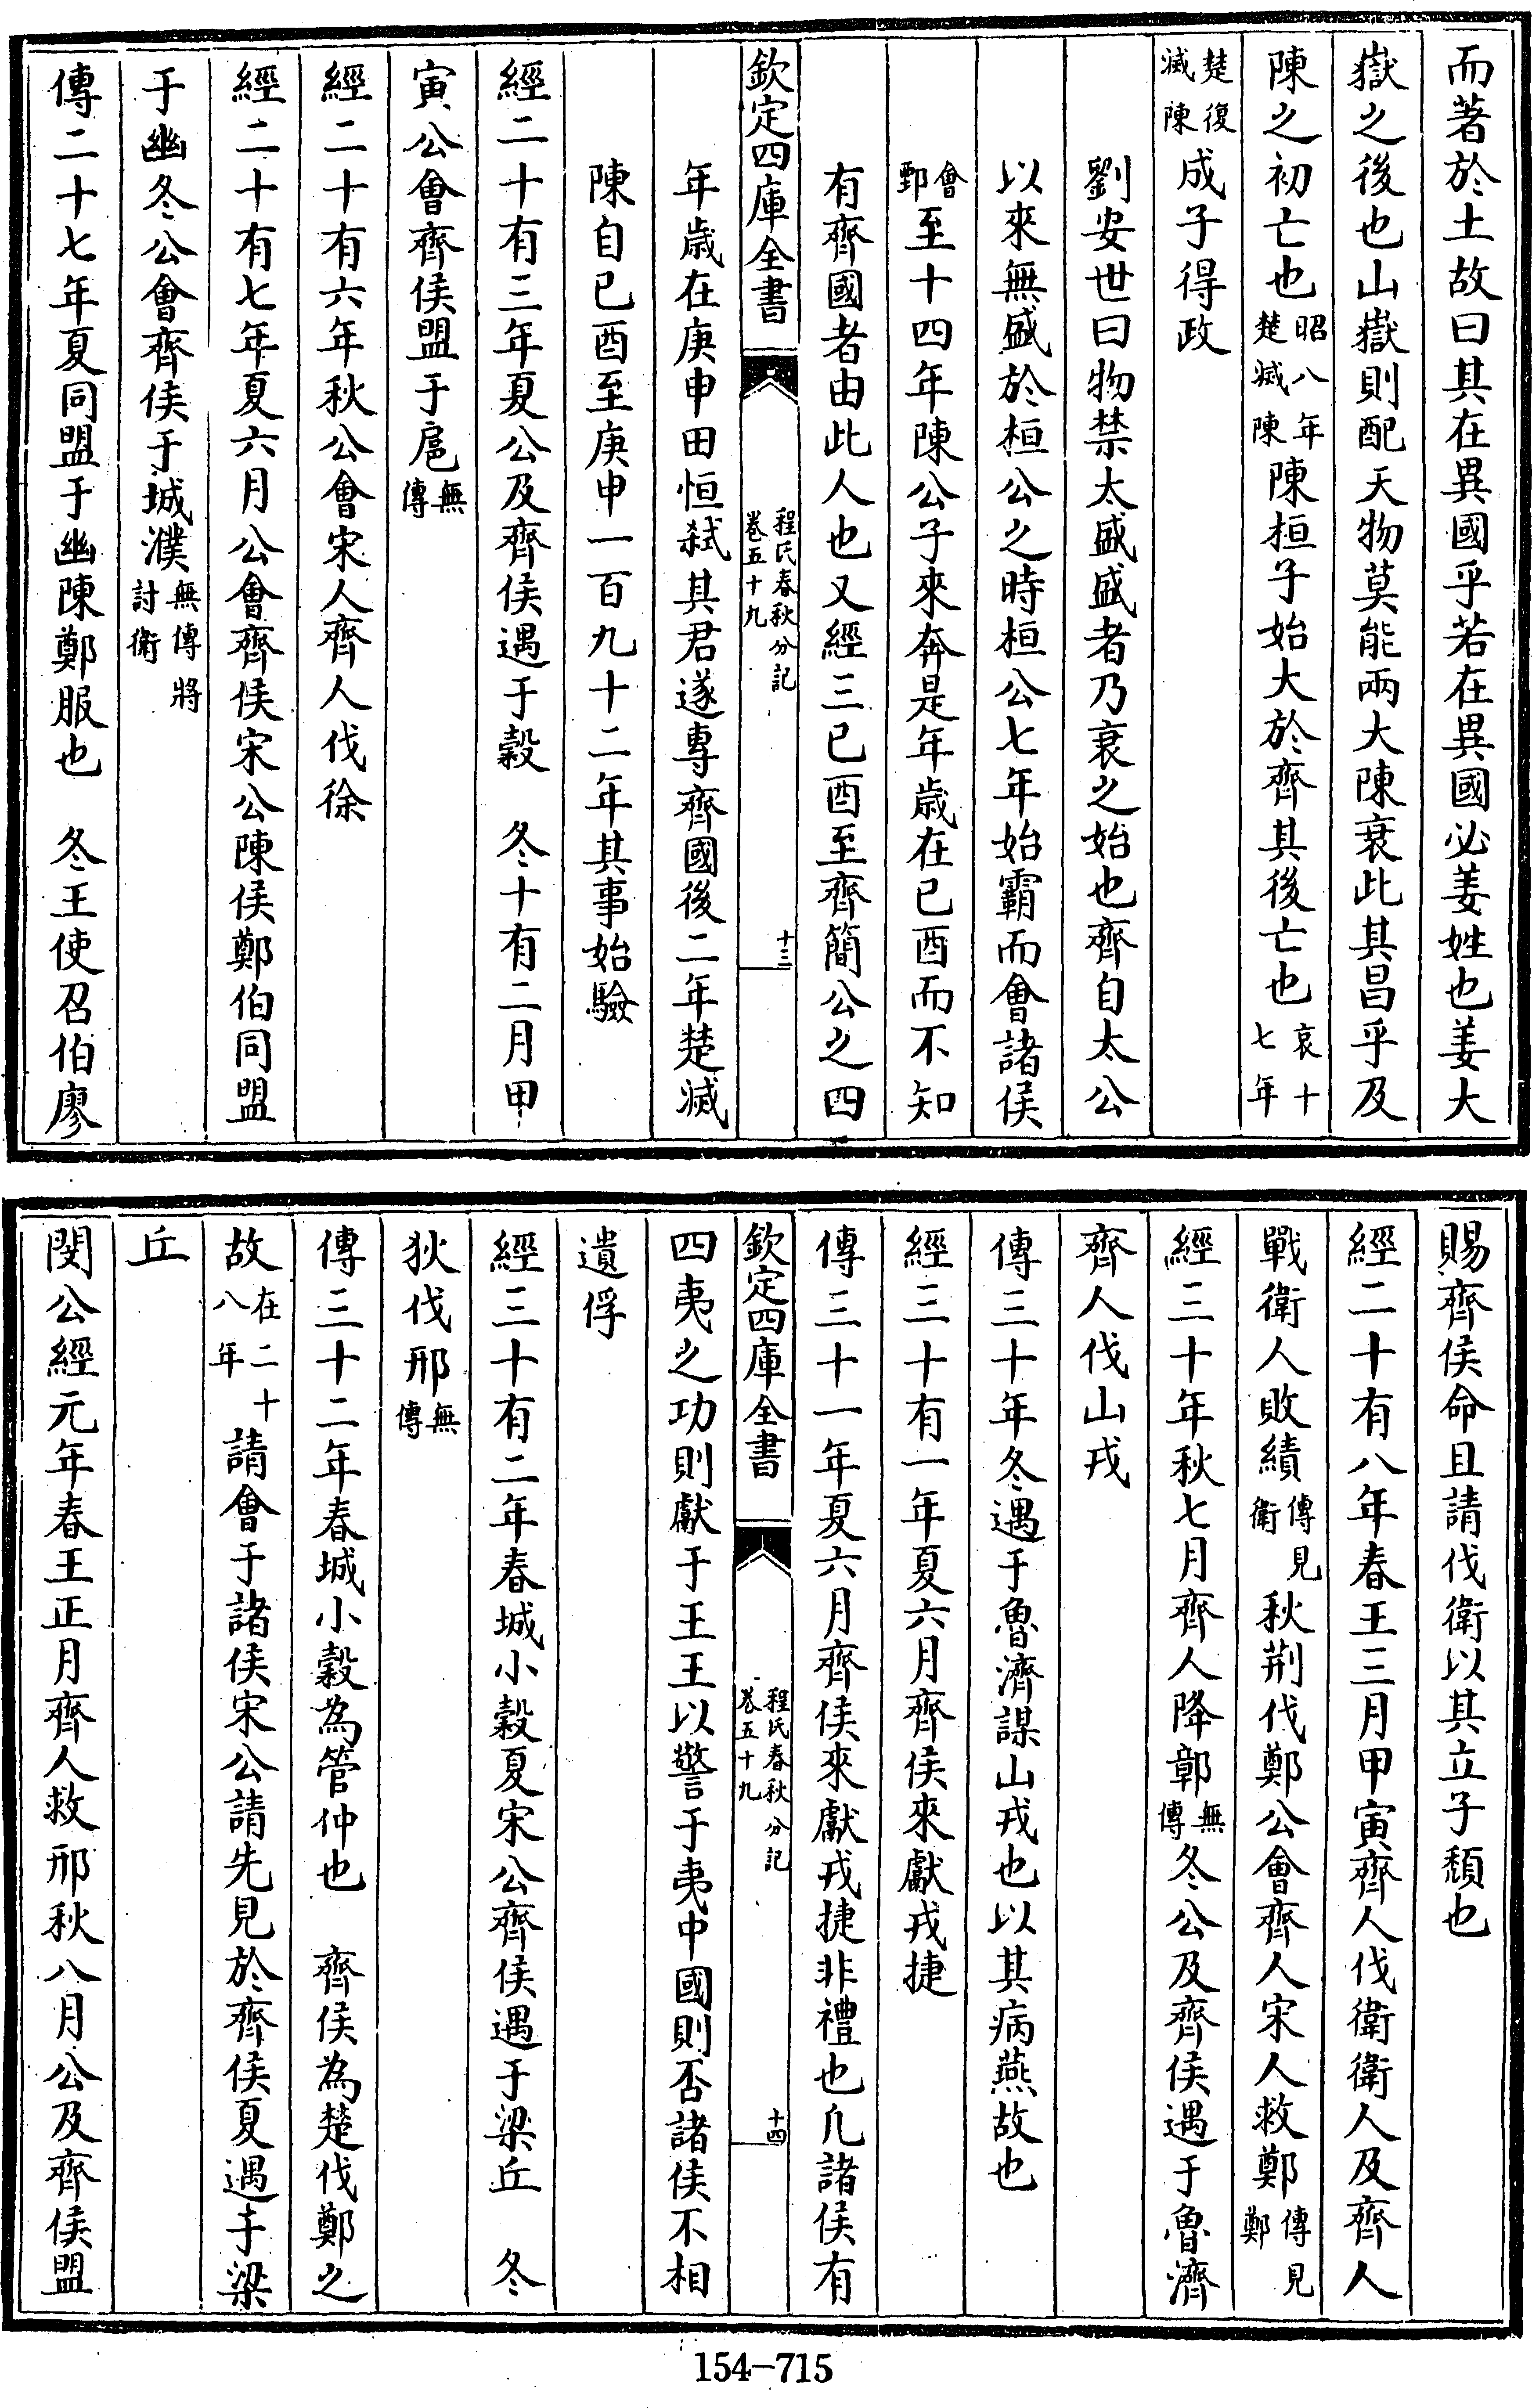 而著於土故曰其在異國乎若在異國必姜姓也姜大
嶽之後也山嶽則配天物莫能兩大陳衰此其昌乎及
陳之初亡也昭八年楚滅陳陳桓子始大於齊其後亡也哀十七年
楚復滅陳成子得政
劉安世曰物禁太盛盛者乃衰之始也齊自太公
以來無盛於桓公之時桓公七年始霸而會諸侯
會鄄至十四年陳公子來奔是年歲在已酉而不知
有齊國者由此人也又經三已酉至齊簡公之四
欽定四庫全書
程氏春秋分記
卷五十九
十三
年歲在庚申田恒弑其君遂專齊國後二年楚滅
陳自已酉至庚申一百九十二年其事始驗
經二十有三年夏公及齊侯遇于穀　冬十有二月甲
寅公會齊侯盟于扈無傳
經二十有六年秋公會宋人齊人伐徐
經二十有七年夏六月公會齊侯宋公陳侯鄭伯同盟
于幽冬公會齊侯于城濮無傳將討衛
傳二十七年夏同盟于幽陳鄭服也　冬王使召伯廖
賜齊侯命且請伐衛以其立子頽也
經二十有八年春王三月甲寅齊人伐衛衛人及齊人
戰衛人敗績傳見衛秋荆伐鄭公會齊人宋人救鄭傳見鄭
經三十年秋七月齊人降鄣無傳冬公及齊侯遇于魯濟
齊人伐山戎
傳三十年冬遇于魯濟謀山戎也以其病燕故也
經三十有一年夏六月齊侯來獻戎捷
傳三十一年夏六月齊侯來獻戎捷非禮也凡諸侯有
欽定四庫全書
程氏春秋分記
卷五十九
十四
四夷之功則獻于王王以警于夷中國則否諸侯不相
遺俘
經三十有二年春城小穀夏宋公齊侯遇于梁丘　冬
狄伐邢無傳
傳三十二年春城小穀為管仲也　齊侯為楚伐鄭之
故在二十八年請會于諸侯宋公請先見於齊侯夏遇于梁
丘
閔公經元年春王正月齊人救邢秋八月公及齊侯盟
154-715